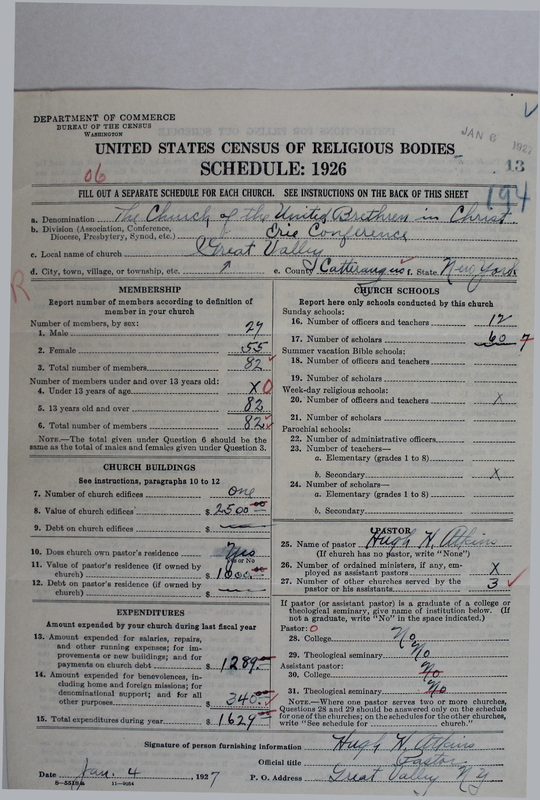 DEPARTMENT OF COMMERCE
BUREAU OF THE CENSUS
WASHINGTON
JAN 6 1927
UNITED STATES CENSUS OF RELIGIOUS BODIES
SCHEDULE: 1926
13
06
194
FILL OUT A SEPARATE SCHEDULE FOR EACH CHURCH. SEE INSTRUCTIONS ON THE BACK OF THIS SHEET
a. Denomination The Church of the United Brethren in Christ
b. Division (Association, Conference, Diocese, Presbytery, Synod, etc.) Erie Conference
c. Local name of church Great Valley
d. City, town, village, or township, etc. e. County Cattaraugus f. State New York
R
MEMBERSHIP
Report number of members according to definition of member in your church
Number of members, by sex:
1. Male 27
2. Female 55
3. Total number of members 82
Number of members under and over 13 years old:
4. Under 13 years of age X 0
5. 13 years old and over 82
6. Total number of members 82
NOTE.—The total given under Question 6 should be the same as the total of males and females given under Question 3.
CHURCH BUILDINGS
See instructions, paragraphs 10 to 12
7. Number of church edifices one
8. Value of church edifices $ 2500.00
9. Debt on church edifices $
10. Does church own pastor's residence Yes
Yes or No
11. Value of pastor's residence (if owned by church) $
12. Debt on pastor's residence (if owned by church) $
EXPENDITURES
Amount expended by your church during last fiscal year
13. Amount expended for salaries, repairs, and other running expenses; for improvements or new buildings; and for payments on church debt $ 1289.00
14. Amount expended for benevolences, including home and foreign missions; for denominational support; and for all other purposes $ 340.00
15. Total expenditures during year $ 1629
CHURCH SCHOOLS
Report here only schools conducted by this church
Sunday schools:
16. Number of officers and teachers 12
17. Number of scholars 60 7
Summer vacation Bible schools:
18. Number of officers and teachers
19. Number of scholars
Week-day religious schools:
20. Number of officers and teachers X
21. Number of scholars
Parochial schools:
22. Number of administrative officers
23. Number of teachers—
a. Elementary (grades 1 to 8)
b. Secondary X
24. Number of scholars—
a. Elementary (grades 1 to 8)
b. Secondary
PASTOR
25. Name of pastor Hugh H. Atkins
(If church has no pastor, write "None")
26. Number of ordained ministers, if any, employed as assistant pastors X
27. Number of other churches served by the pastor or his assistants 3
If pastor (or assistant pastor) is a graduate of a college or theological seminary, give name of institution below. (If not a graduate, write "No" in the space indicated.)
Pastor: 0
28. College No
29. Theological seminary No
Assistant pastor:
30. College No
31. Theological seminary No
NOTE.—Where one pastor serves two or more churches, Questions 28 and 29 should be answered only on the schedule for one of the churches; on the schedules for the other churches, write "See schedule for church."
Signature of person furnishing information Hugh H. Atkins
Official title Pastor
Date Jan. 4, 1927 P. O. Address Great Valley N.Y.
11—9064